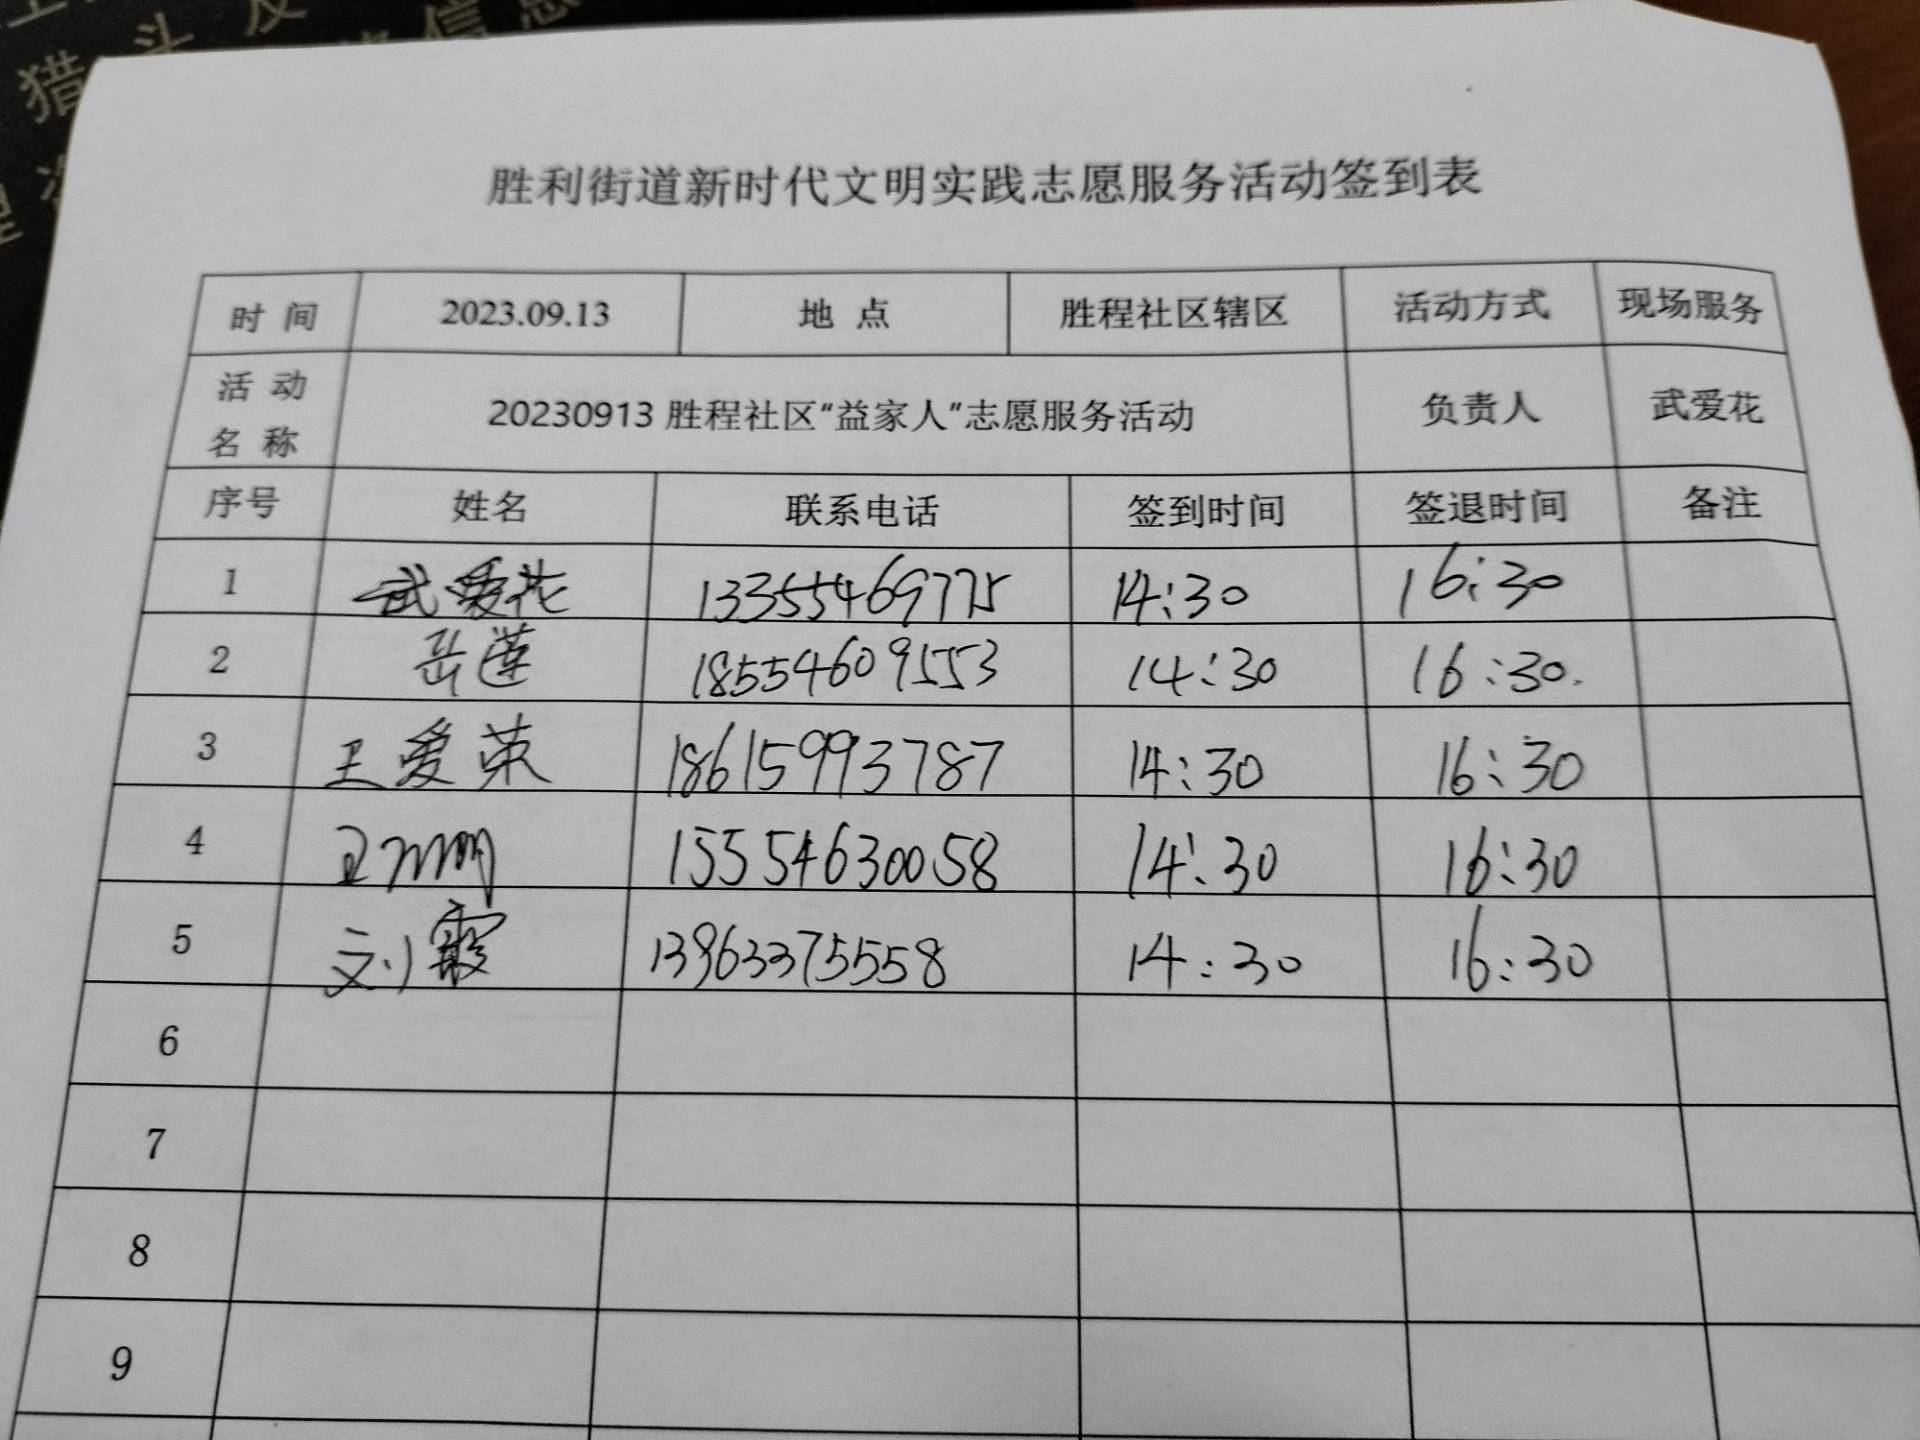 猎头
信息
胜利街道新时代文明实践志愿服务活动签到表
时间 2023.09.13 地点 胜程社区辖区 活动方式 现场服务
活动名称 20230913胜程社区“益家人”志愿服务活动 负责人 武爱花
序号 姓名 联系电话 签到时间 签退时间 备注
1 武爱花 13355469775 14:30 16:30
2 岳莲 18554609553 14:30 16:30.
3 王爱英 18615993787 14:30 16:30
4 王 15554630058 14:30 16:30
5 刘霞 13963375558 14:30 16:30
6
7
8
9